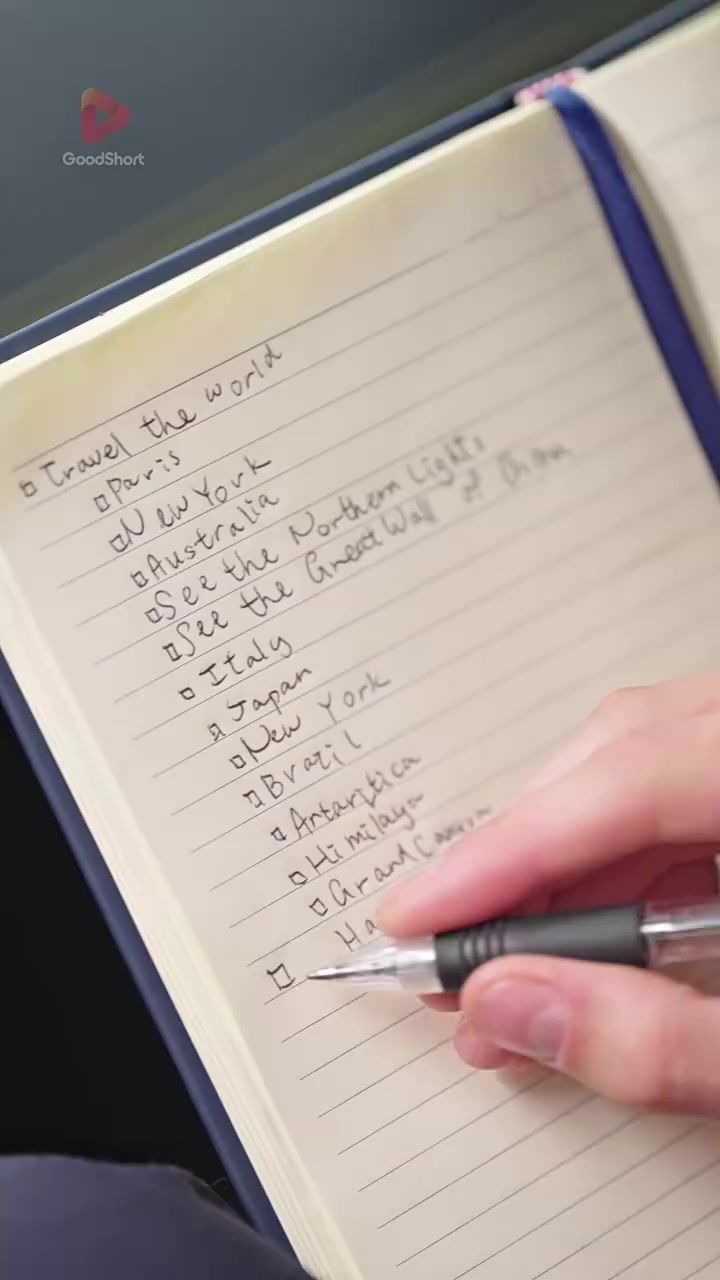 GoodShort
Travel the world
Paris
New York
Australia
See the Northern Lights
See the Great Wall of China
Italy
Japan
New York
Brazil
Antartica
Himilaya
Grand Canyon
Ha